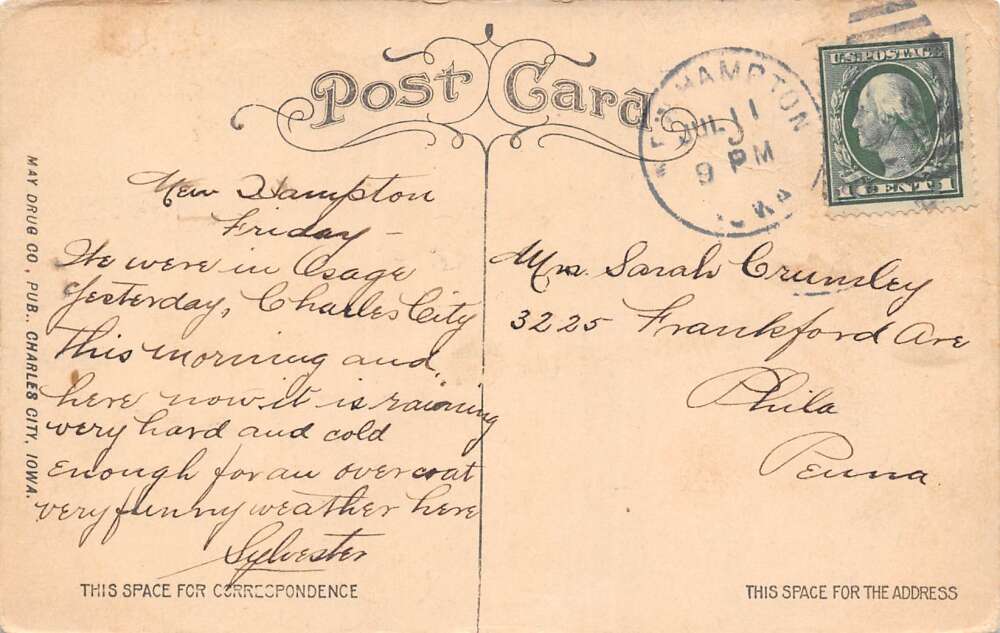 Post Card
NEW HAMPTON
JUL 11
9 PM
IOWA
U.S. POSTAGE
1 CENT 1
MAY DRUG CO., PUB., CHARLES CITY, IOWA.
New Hampton
Friday -
We were in Osage
yesterday, Charles City
this morning and
here now it is raining
very hard and cold
enough for an overcoat
very funny weather here
Sylvester
THIS SPACE FOR CORRESPONDENCE
Mrs. Sarah Crumley
3225 Frankford Ave
Phila
Penna
THIS SPACE FOR THE ADDRESS